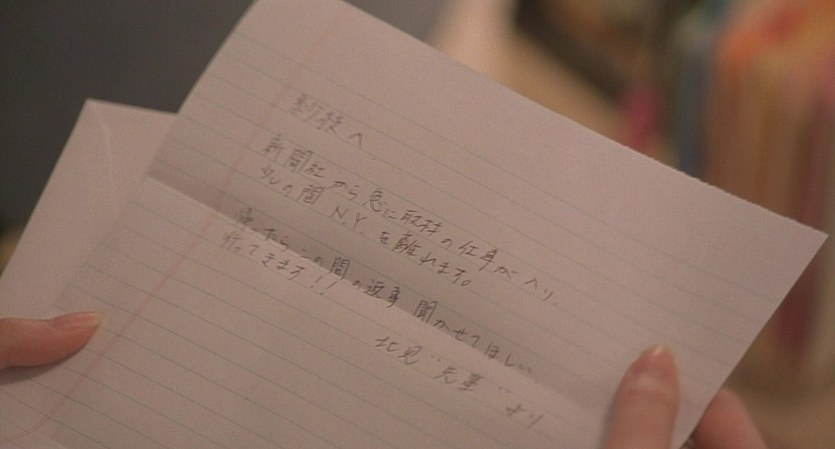 新聞社から急に取材の仕事が入り、
少しの間 N.Y. を離れます。
帰ったら、この間の返事 聞かせてほしい。
行ってきます!!
北見 "先輩" より